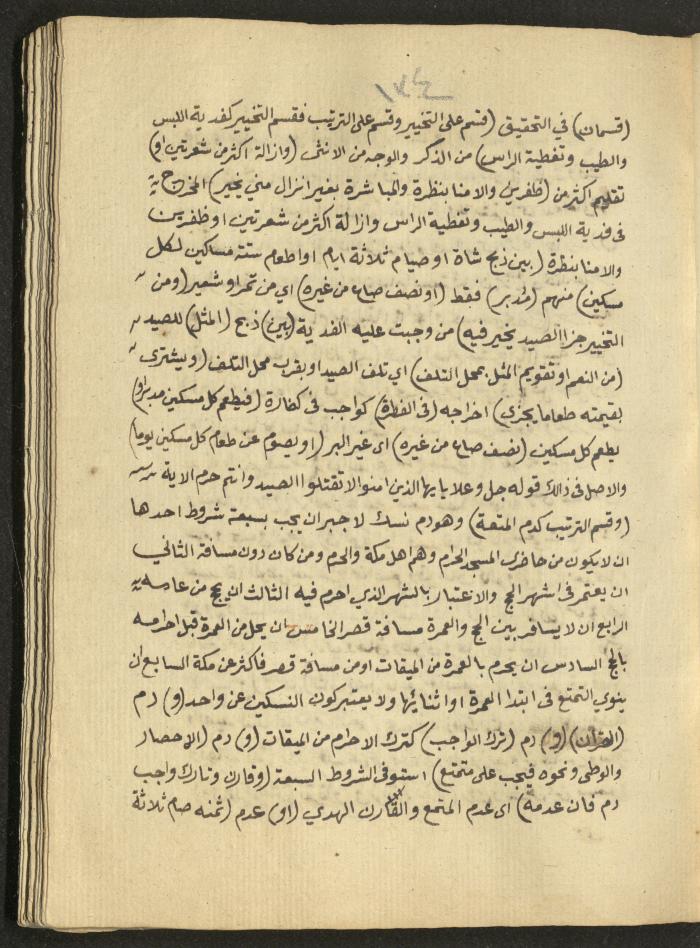 ١٣٤
(قسمان) في التحقيق (قسم على التخيير وقسم على الترتيب فقسم التخيير كفدية اللبس
والطيب وتغطية الراس) من الذكر والوجه من الانثى (وازالة اكثر من شعرتين او)
تقليم اكثر من (ظفرين والامنا بنظرة والمباشرة بغير انزال مني يخير) المخرج
في فدية اللبس والطيب وتغطية الراس وازالة اكثر من شعرتين او ظفرين
والامنا بنظرة (بين ذبح شاة او صيام ثلاثة ايام او اطعام ستة مساكين لكل
مسكين) منهم (مد بر) فقط (او نصف صاع من غيره) اي من تمر او شعير (ومن
التخيير جزا الصيد يخير فيه) من وجبت عليه الفدية (بين) ذبح (المثل) للصيد
(من النعم او تقويم المثل بمحل التلف) اي تلف الصيد او بقرب محل التلف (ويشترى
بقيمته طعاما يجزي) اخراجه (في الفطرة) كواجب في كفارة (فيطعم كل مسكين مد بر او)
يطعم كل مسكين (نصف صاع من غيره) اى غير البر (او يصوم عن طعام كل مسكين يوما)
والاصل في ذالك قوله جل وعلا يايها الذين امنوا لا تقتلوا الصيد وانتم حرم الاية
(وقسم الترتيب كدم المتعة) وهو دم نسك لا جبران يجب بسبعة شروط احدها
ان لا يكون من حاضرى المسجد الحرام وهم اهل مكة والحرم ومن كان دون مسافة الثاني
ان يعتمر في اشهر الحج والاعتبار بالشهر الذي احرم فيه الثالث ان يحج من عامه
الرابع ان لا يسافر بين الحج والعمرة مسافة قصر الخامس ان يحل من العمرة قبل احرامه
بالحج السادس ان يحرم بالعمرة من الميقات او من مسافة قصر فاكثر عن مكة السابع ان
ينوي التمتع في ابتدا العمرة او اثنائها ولا يعتبر كون النسكين عن واحد (و) دم
(القران) (و) دم (ترك الواجب) كترك الاحرام من الميقات (و) دم (الاحصار
والوطى ونحوه فيجب على متمتع) استوفى الشروط السبعة (وقارن وتارك واجب
دم فان عدمه) اى عدم المتمتع والقارن الهدي (او) عدم (ثمنه صام ثلاثة